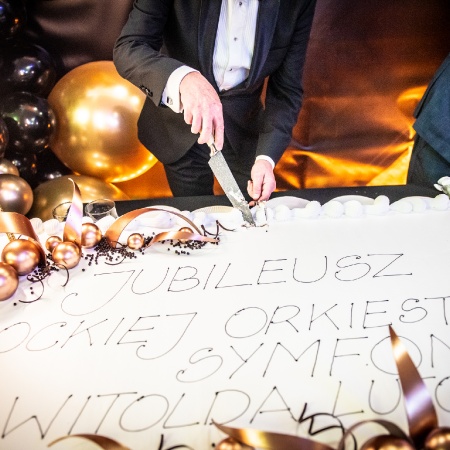 JUBILEUSZ
OCKIEJ ORKIEST
SYMFON
WITOLDA LUTO